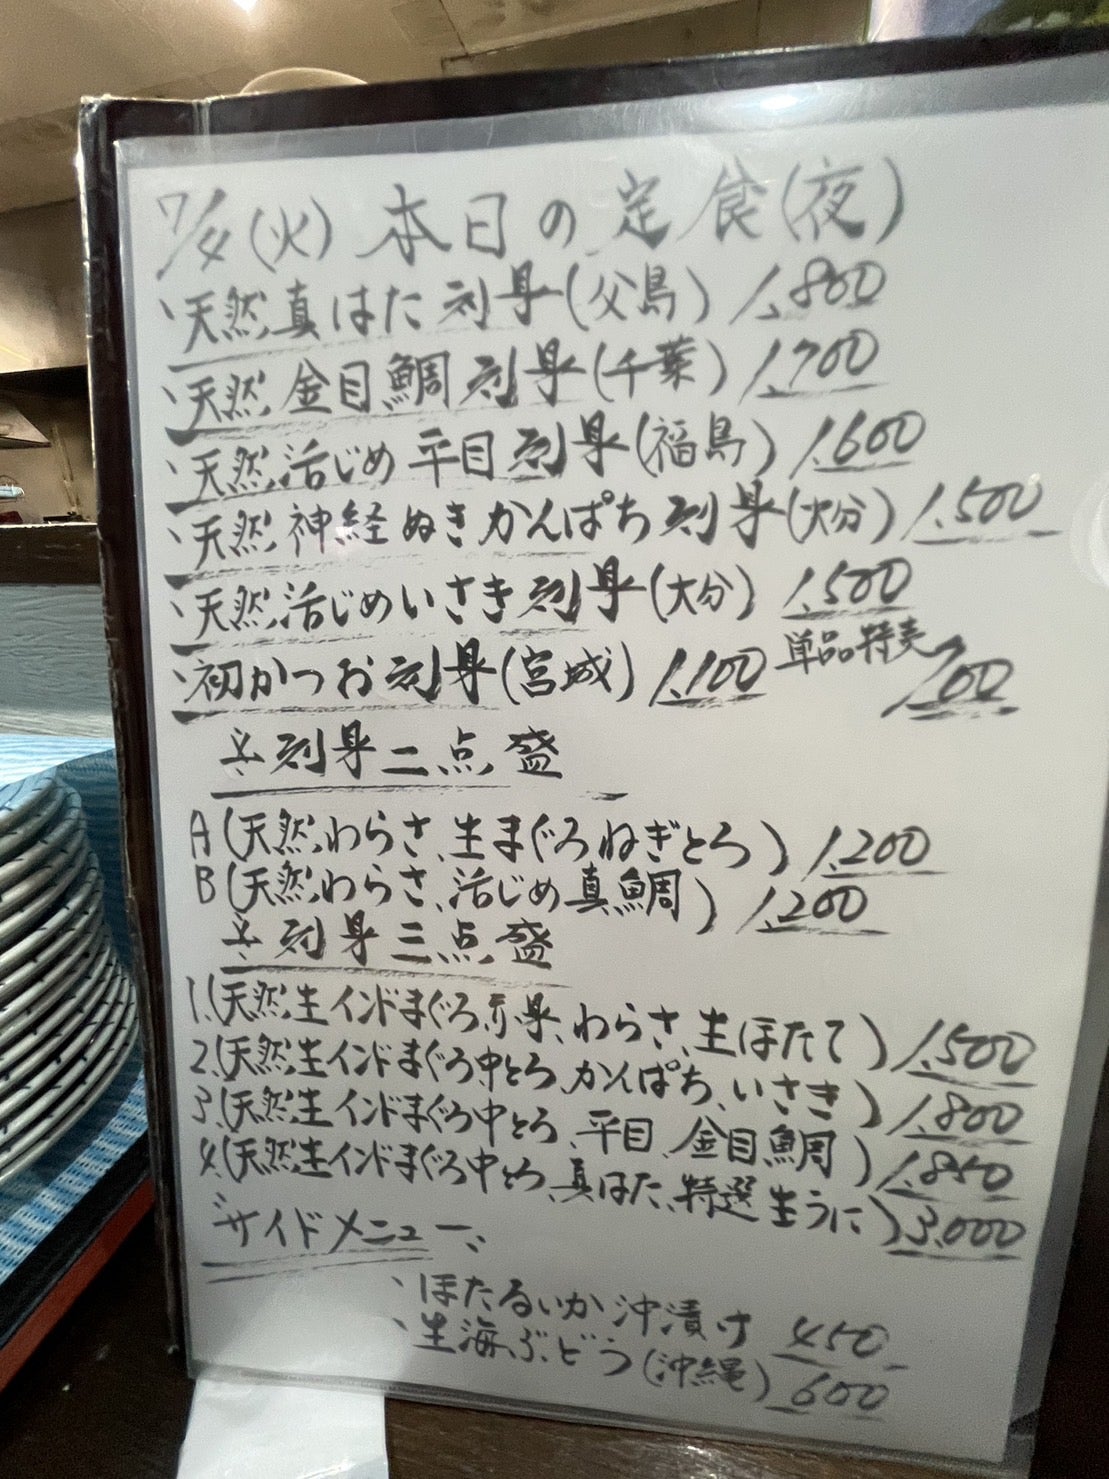 7/4(火) 本日の定食(夜)
、天然真はた刺身(父島) 1,800
、天然金目鯛刺身(千葉) 1,700
、天然活じめ平目刺身(福島) 1,600
、天然神経ぬきかんぱち刺身(大分) 1,500
、天然活じめいさき刺身(大分) 1,500
、初かつお刺身(宮城) 1,100 単品特売 700
☆刺身二点盛
A(天然わらさ、生まぐろねぎとろ) 1,200
B(天然わらさ、活じめ真鯛) 1,200
☆刺身三点盛
1.(天然生インドまぐろ赤身、わらさ、生ほたて) 1,500
2.(天然生インドまぐろ中とろ、かんぱち、いさき) 1,800
3.(天然生インドまぐろ中とろ、平目、金目鯛) 1,850
4.(天然生インドまぐろ中とろ、真はた、特選生うに) 3,000
サイドメニュー
、ほたるいか沖漬け 450
、生海ぶどう(沖縄) 600